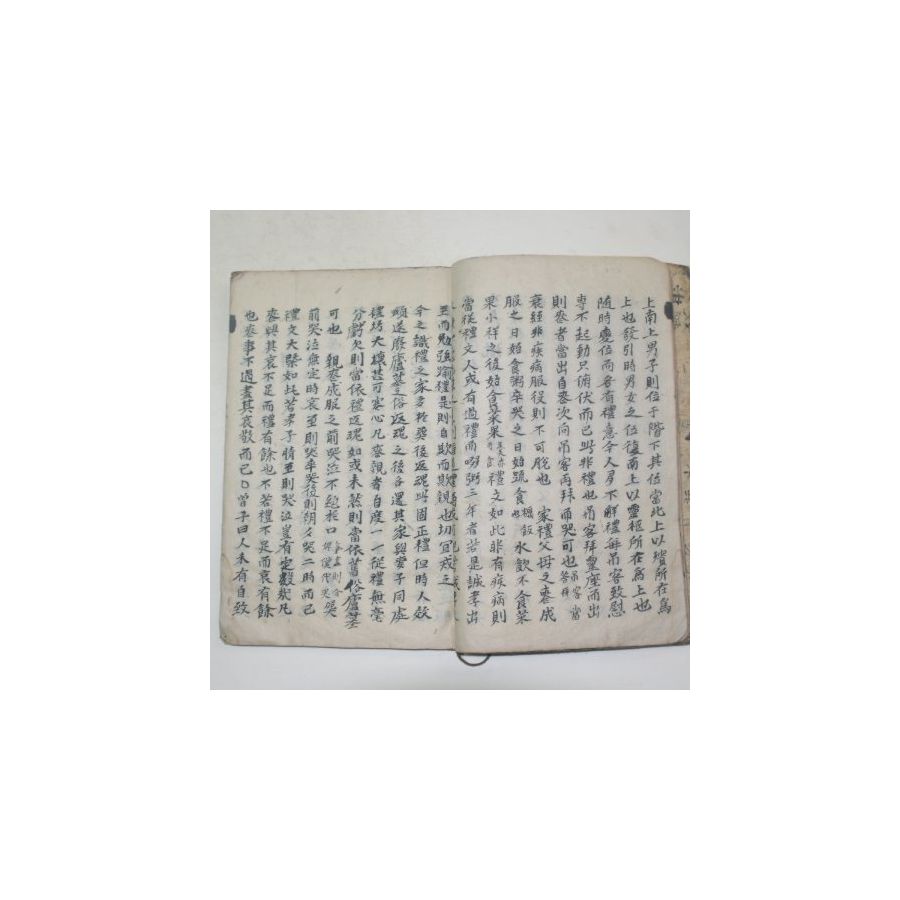 上南上男子則位于階下其位當北上以殯所在爲
上也發引時男女之位復南上以靈柩所在爲上也
隨時變位而各有禮意今人多不解禮每吊客致慰
專不起動只俯伏而已此非禮也吊客拜靈座而出
則喪者當出自喪次向吊客再拜而哭可也吊客當答拜
衰絰非疾病服役則不可脫也 家禮父母之喪成
服之日始食粥卒哭之日始疏食糲飯也水飮不食菜
果小祥之後始食菜果羹亦可食禮文如此非有疾病則
當從禮文人或有過禮而啜粥三年者若是誠孝出
至而勉强踰禮是則自欺而欺親也切宜戒之
今之識禮之家多於葬後返魂此固正禮但時人效
嚬遂廢廬墓之俗返魂之後各還其家與妻子同處
禮坊大壞甚可寒心凡喪親者自度一一從禮無毫
分虧欠則當依禮返魂如或未然則當依舊俗廬墓
可也 親喪成服之前哭泣不絶於口氣盡則令婢僕代哭葬
前哭泣無定時哀至則哭卒哭後則朝夕哭二時而已
禮文大槩如此若孝子情至則哭泣豈有定數哉凡
喪與其哀不足而禮有餘也不若禮不足而哀有餘
也喪事不過盡其哀敬而已〇曾子曰人未有自致